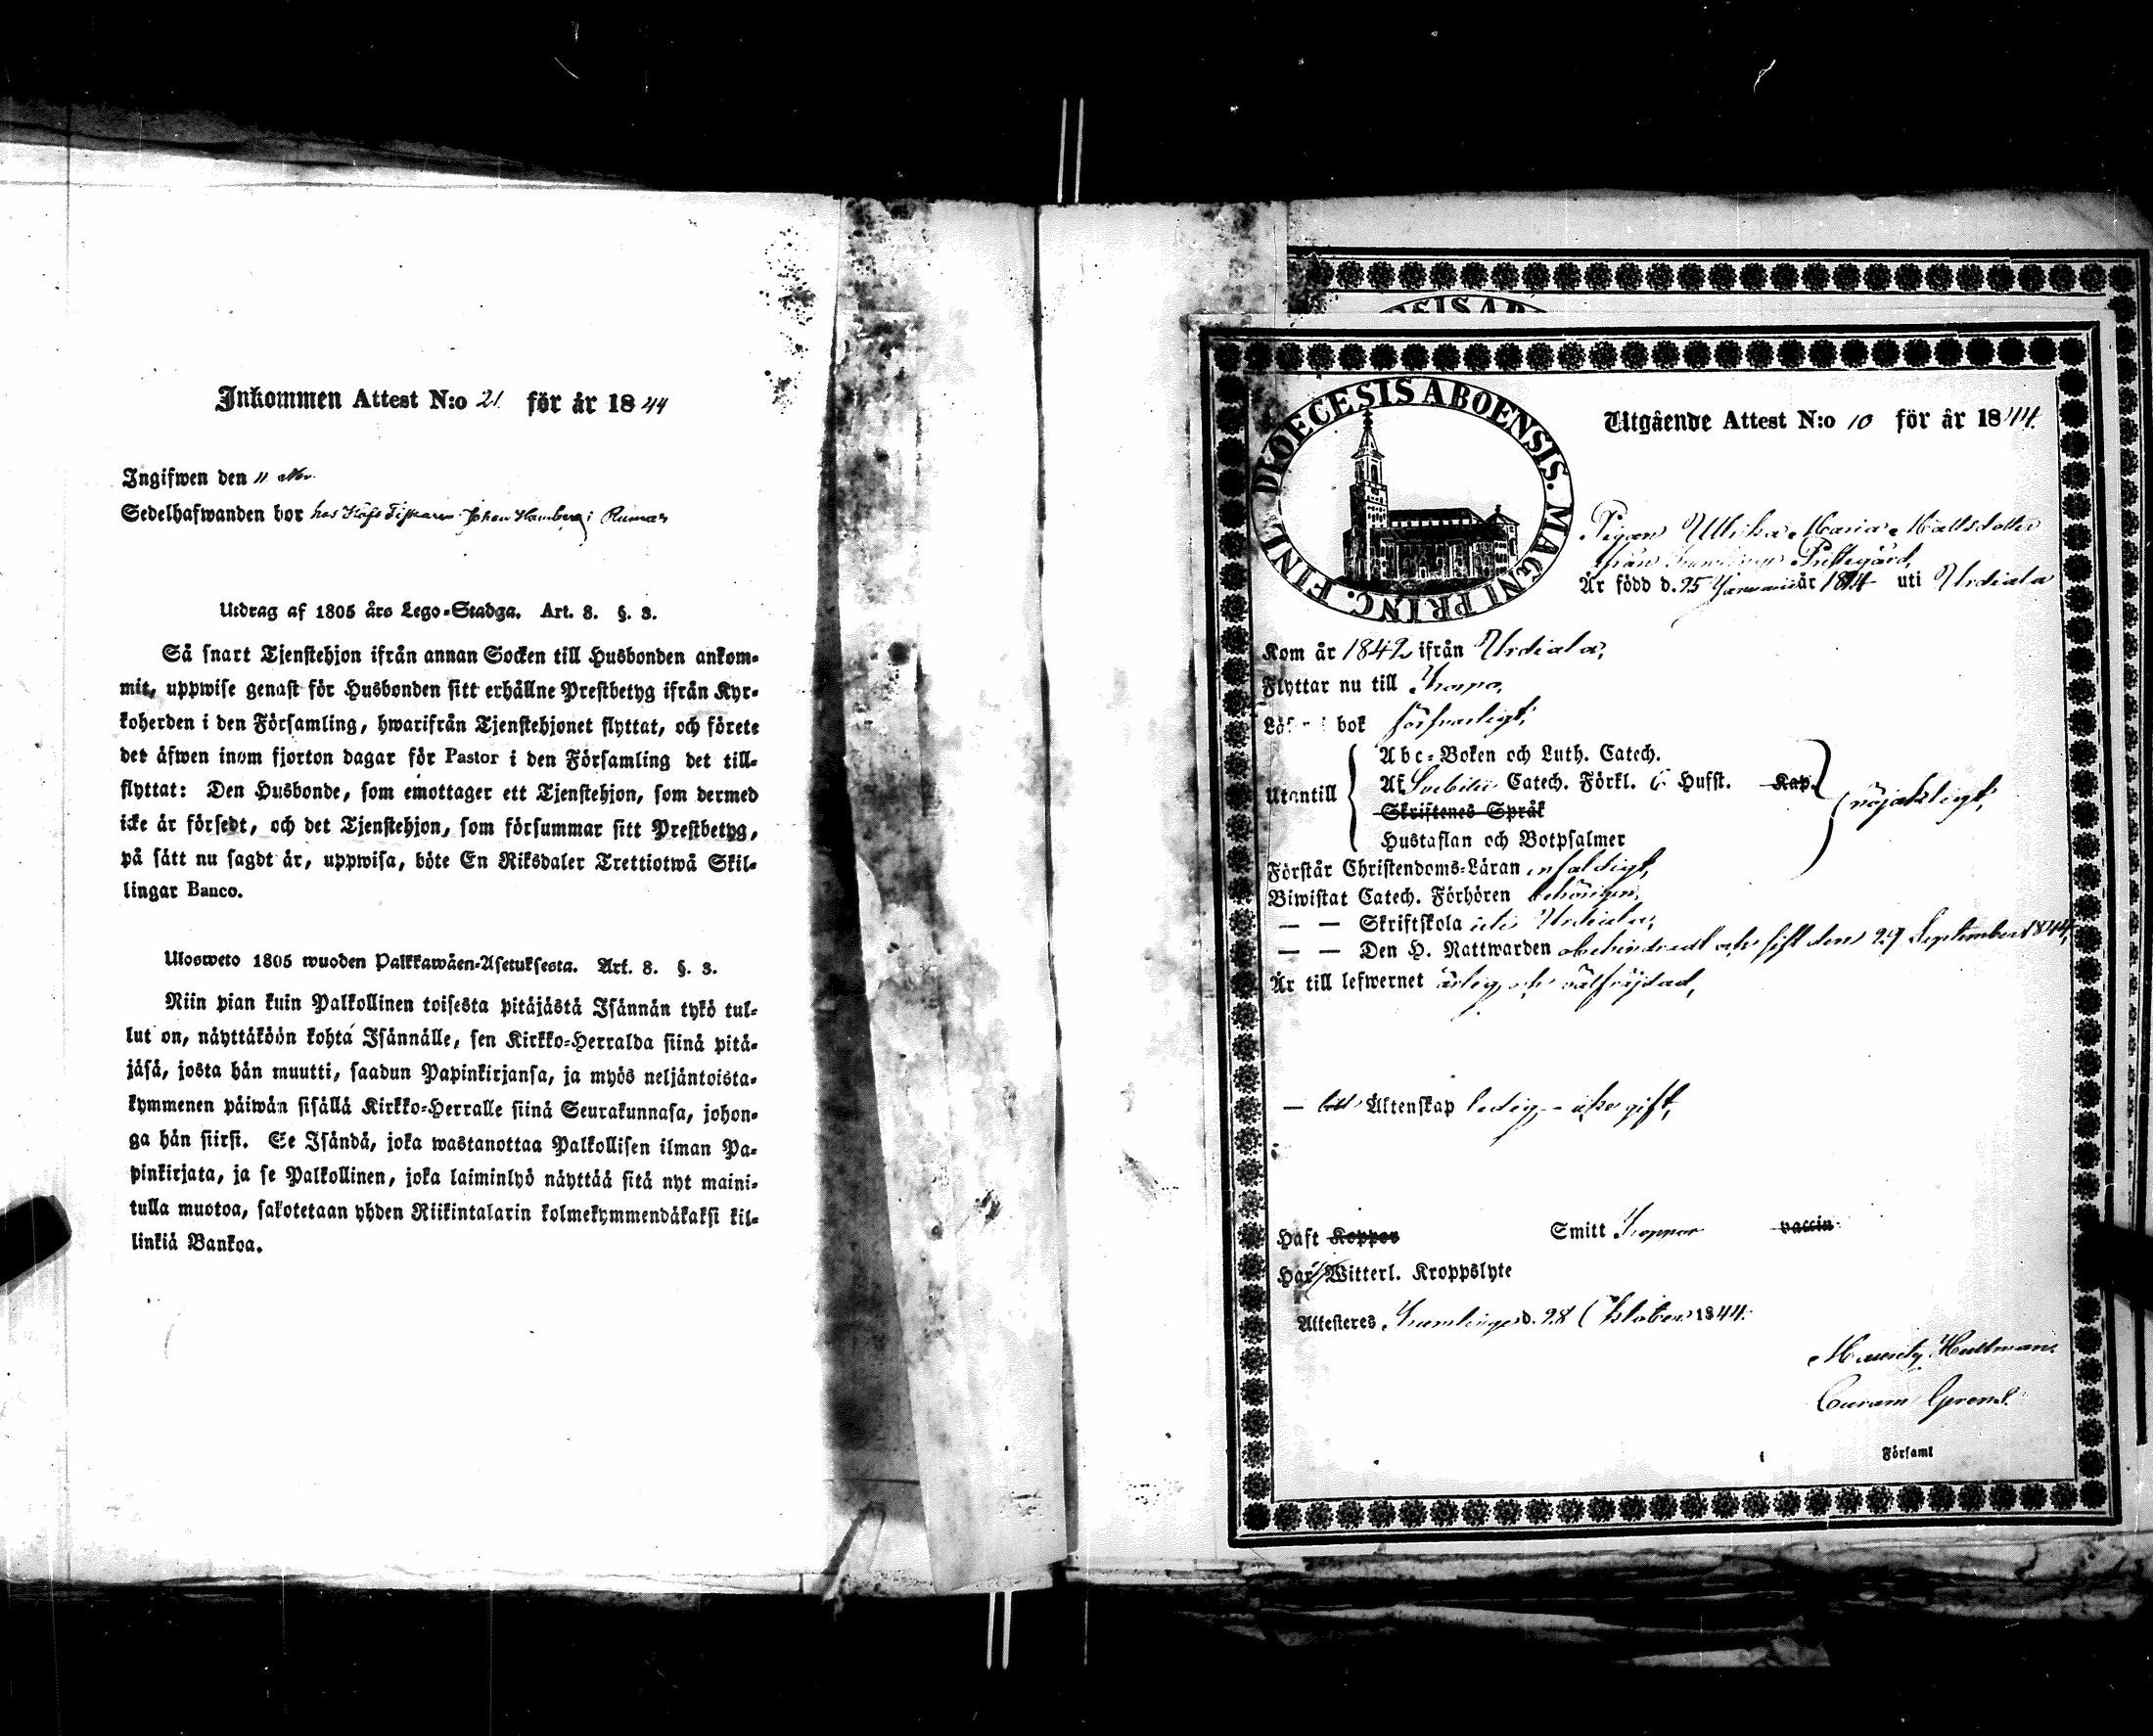 Inkommen Attest N:o 21 för år 1844
Ingifwen den 11 Nov.
Sedelhafwanden bor hos Johan Hamberg i Rumar
Utdrag af 1805 års Lego-Stadga. Art. 8. §. 3.
Så snart Tjenstehjon ifrån annan Socken till Husbonden ankom-
mit, uppwise genast för Husbonden sitt erhållne Prestbetyg ifrån Kyr-
koherden i den Församling, hwarifrån Tjenstehjonet flyttat, och förete
det äfwen inom fjorton dagar för Pastor i den Församling det till-
flyttat: Den Husbonde, som emottager ett Tjenstehjon, som dermed
icke är försedt, och det Tjenstehjon, som försummar sitt Prestbetyg,
på sätt nu sagdt är, uppwisa, böte En Riksdaler Trettiotwå Skil-
lingar Banco.
Ulosweto 1805 wuoden Palkkawäen-Asetuksesta. Art. 8. §. 3.
Niin pian kuin Palkollinen toisesta pitäjästä Isännän tykö tul-
lut on, näyttäköön kohta Isännälle, sen Kirkko-Herralda siinä pitä-
jäsä, josta hän muutti, saadun Papinkirjansa, ja myös neljäntoista-
kymmenen päiwän sisällä Kirkko-Herralle siinä Seurakunnasa, johon-
ga hän siirsi. Se Isändä, joka wastanottaa Palkollisen ilman Pa-
pinkirjata, ja se Palkollinen, joka laiminlyö näyttää sitä nyt maini-
tulla muotoa, sakotetaan yhden Riikintalarin kolmekymmendäkaksi kil-
linkiä Bankoa.
DIOECESIS ABOENSIS. MAGNI PRINC. FINL.
Utgående Attest N:o 10 för år 1844.
Pigan Ulrika Maria Mattsdotter
från Kumlinge Prestegård,
Är född d. 25 Januarii år 1814 uti Urdiala
Kom år 1842 ifrån Urdiala,
Flyttar nu till Korpo,
Läser i bok försvarligt,
Utantill
Abc-Boken och Luth. Catech.
Af Svebilii Catech. Förkl. 6 Hufst. Kap.
Skriftenes Språk
Hustaflan och Botpsalmer
nöjaktigt,
Förstår Christendoms-Läran enfaldigt,
Biwistat Catech. Förhören behörigen,
— — Skriftskola uti Urdiala,
— — Den H. Nattwarden obehindradt och sist den 29 September 1844,
Är till lefwernet ärlig och välfräjdad,
— till Äktenskap ledig, icke gift,
Haft Koppor Smitt Koppor vaccin.
Har Witterl. Kroppslyte
Attesteres Kumlinge d. 28 October 1844.
Mauritz Hultman.
Curam Gerens.
i Församl